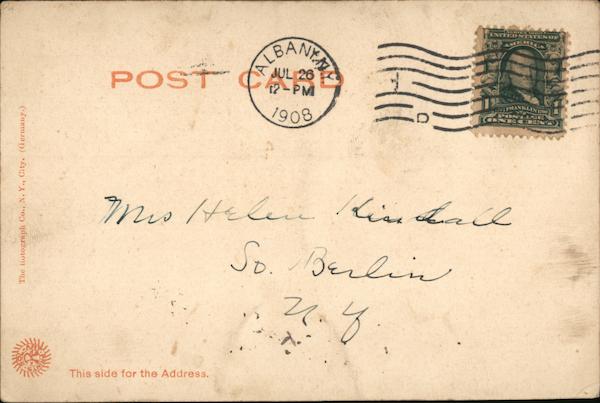 POST CARD
ALBANY, N.Y.
JUL 26
12-PM
1908
D
UNITED STATES OF
AMERICA
FRANKLIN
POSTAGE
ONE CENT
Mrs Helen Kimball
So. Berlin
N. Y.
The Rotograph Co., N. Y., City. (Germany.)
This side for the Address.